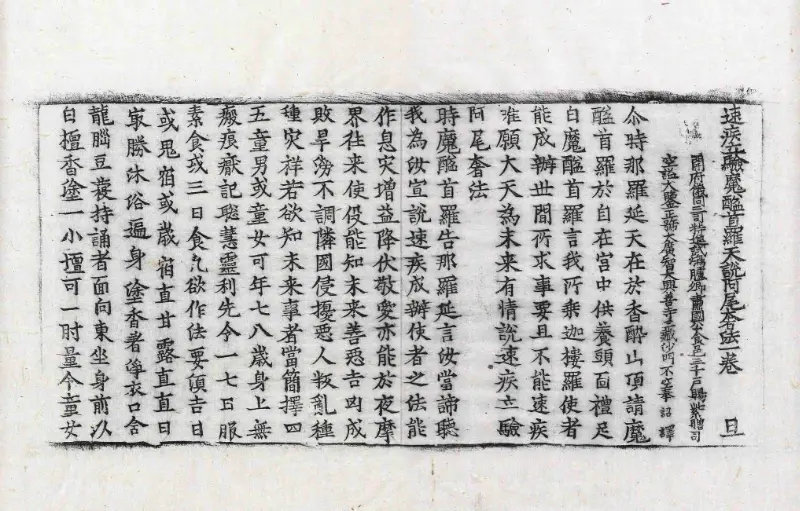 速疾立驗魔醯首羅天說阿尾奢法卷 旦
開府儀同三司特進試鴻臚卿肅國公食邑三千戶賜紫贈司
空謚大鑒正號大廣智大興善寺三藏沙門不空奉 詔譯
尒時那羅延天在於香醉山頂請魔
醯首羅於自在宮中供養頭面禮足
白魔醯首羅言我所乘迦樓羅使者
能成辦世間所求事要且不能速疾
唯願大天為未来有情說速疾立驗
阿尾奢法
時魔醯首羅告那羅延言汝當諦聽
我為汝宣說速疾成辦使者之法能
作息灾增益降伏敬愛亦能於夜摩
界往来使役能知未来善惡吉凶成
敗旱澇不調隣國侵擾惡人叛亂種
種灾祥若欲知未来事者當簡擇四
五童男或童女可年七八歲身上無
瘢痕靨記聡慧靈利先令一七日服
素食或三日食凢欲作法要須吉日
或鬼宿或歲宿直甘露直直日
㝡勝沐浴遍身塗香著淨衣口含
龍腦豆蔲持誦者面向東坐身前以
白檀香塗一小壇可一肘量令童女